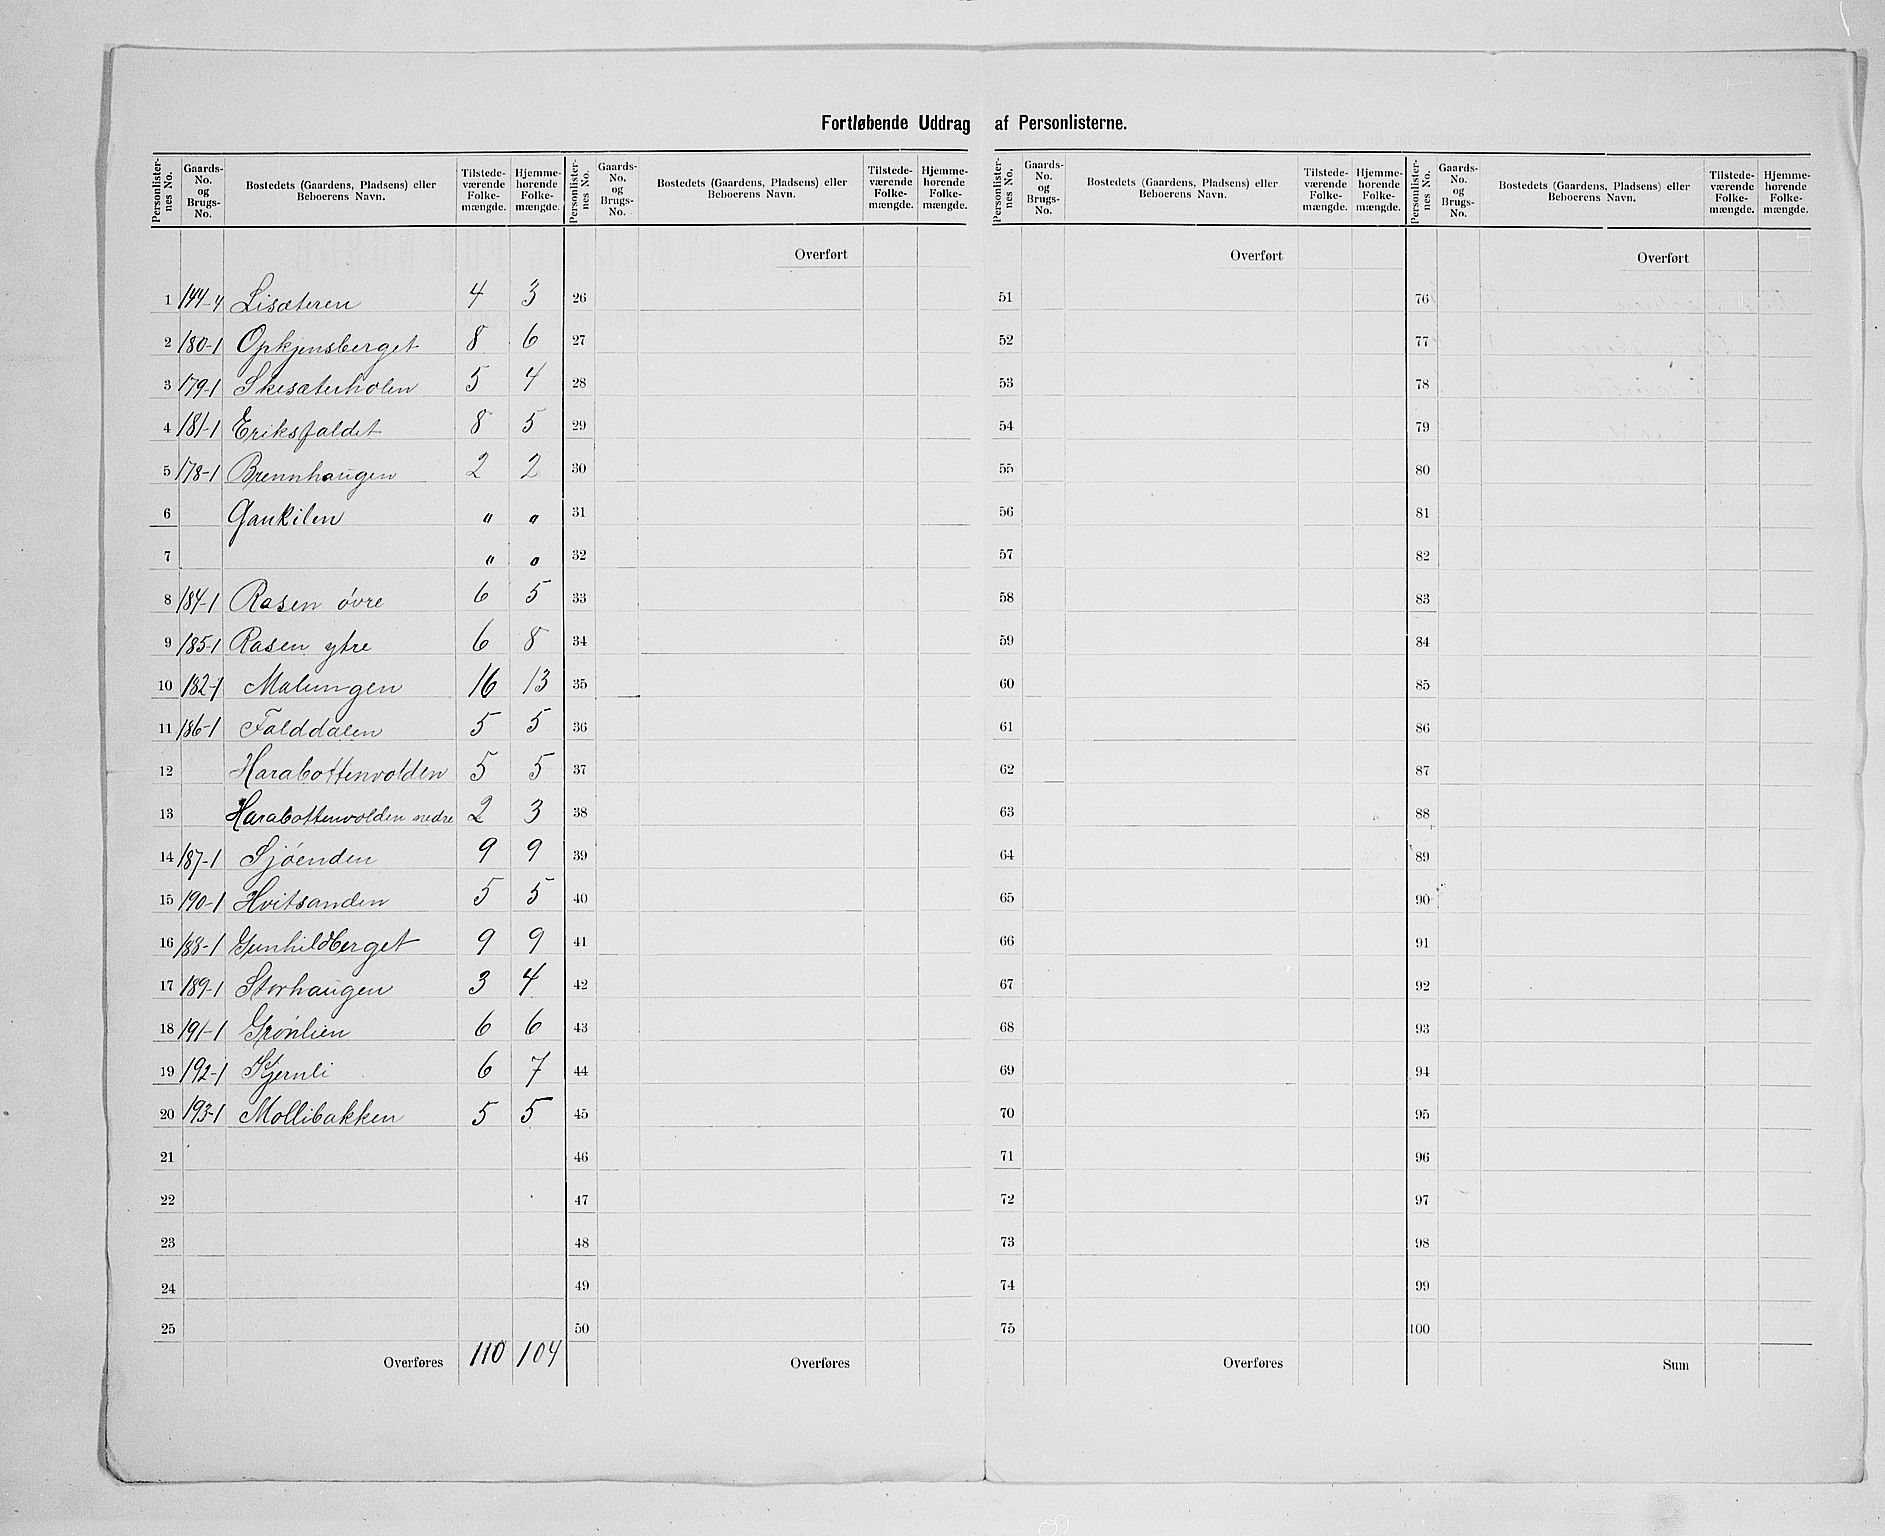 Fortløbende Uddrag af Personlisterne.
Personlisternes No. Gaards-No. og Brugs-No. Bostedets (Gaardens, Pladsens) eller Beboerens Navn. Tilstedeværende Folkemængde. Hjemmehørende Folkemængde.
1 144-4 Lisæteren 4 3
2 180-1 Opkjensberget 8 6
3 179-1 Skisæterholen 5 4
4 181-1 Eriksfaldet 8 5
5 178-1 Brennhaugen 2 2
6 Gaukilen " "
7 " "
8 184-1 Rasen øvre 6 5
9 185-1 Rasen ytre 6 8
10 182-1 Malungen 16 13
11 186-1 Falddalen 5 5
12 Harabottenvolden 5 5
13 Harabottenvolden nedre 2 3
14 187-1 Sjøenden 9 9
15 190-1 Hvitsanden 5 5
16 188-1 Gunhildberget 9 9
17 189-1 Storhaugen 3 4
18 191-1 Grønlien 6 6
19 192-1 Kjernli 6 7
20 193-1 Mollibakken 5 5
21
22
23
24
25
Overføres 110 104
Personlisternes No. Gaards-No. og Brugs-No. Bostedets (Gaardens, Pladsens) eller Beboerens Navn. Tilstedeværende Folkemængde. Hjemmehørende Folkemængde.
Overført
26
27
28
29
30
31
32
33
34
35
36
37
38
39
40
41
42
43
44
45
46
47
48
49
50
Overføres
Personlisternes No. Gaards-No. og Brugs-No. Bostedets (Gaardens, Pladsens) eller Beboerens Navn. Tilstedeværende Folkemængde. Hjemmehørende Folkemængde.
Overført
51
52
53
54
55
56
57
58
59
60
61
62
63
64
65
66
67
68
69
70
71
72
73
74
75
Overføres
Personlisternes No. Gaards-No. og Brugs-No. Bostedets (Gaardens, Pladsens) eller Beboerens Navn. Tilstedeværende Folkemængde. Hjemmehørende Folkemængde.
Overført
76
77
78
79
80
81
82
83
84
85
86
87
88
89
90
91
92
93
94
95
96
97
98
99
100
Sum